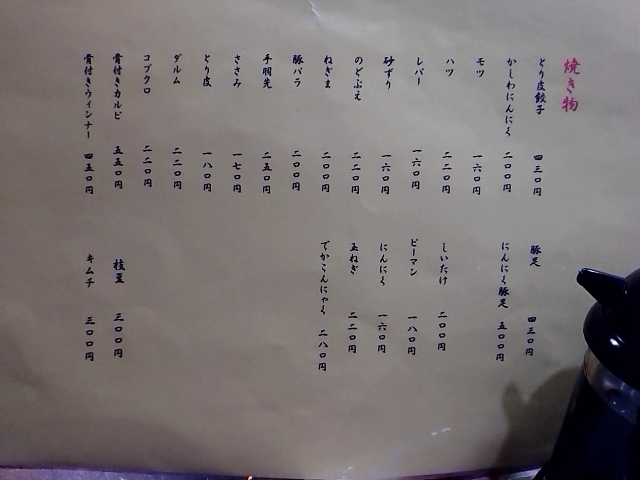 焼き物
とり皮餃子 四三〇円
かしわにんにく 二〇〇円
モツ 一六〇円
ハツ 二二〇円
レバー 一六〇円
砂ずり 一六〇円
のどぶえ 二二〇円
ねぎま 二〇〇円
豚バラ 二〇〇円
手羽先 二五〇円
ささみ 一七〇円
とり皮 一八〇円
ダルム 二二〇円
コブクロ 二二〇円
骨付きカルビ 五五〇円
骨付きウィンナー 四五〇円
豚足 四三〇円
にんにく豚足 五〇〇円
しいたけ 二〇〇円
ピーマン 一八〇円
にんにく 一六〇円
玉ねぎ 二二〇円
でかこんにゃく 二八〇円
枝豆 三〇〇円
キムチ 三〇〇円